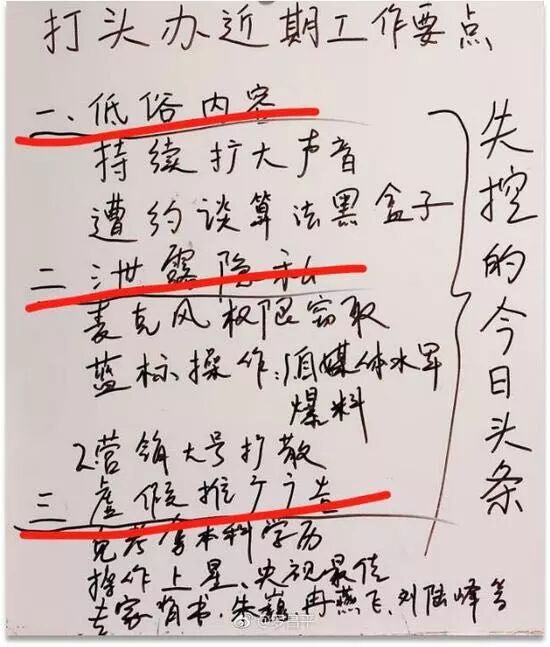 打头办近期工作要点
一、低俗内容
持续扩大声音
遭约谈算法黑盒子
二、泄露隐私
麦克风权限窃取
蓝标操作:1自媒体水军
爆料
2.营销大号扩散
三 虚假推广广告
免考拿本科学历
操作上星、央视最佳
专家背书,朱巍、冉燕飞、刘陆峰等
失控的今日头条